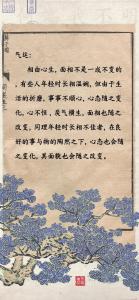 气运:
相由心生,面相不是一成不变的
,有些人年轻时长相温婉,但由于生
活的折磨,事事不顺心,心态随之变
化,心不恒,戾气横生,面相也随之
改变。同理年轻时长相不佳者,在良
好的事与物的陶然之下,心态也会随
之变化,其面貌也会随之改变。